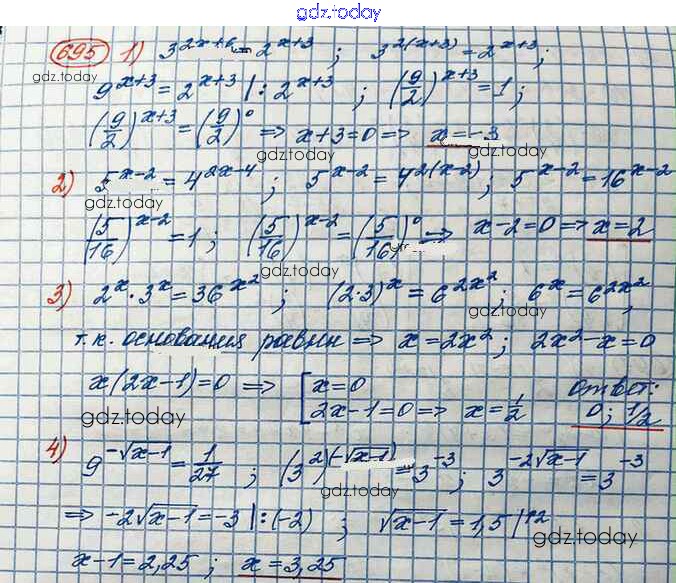 gdz.today
695 1) 3^{2x+6} = 2^{x+3} ; 3^{2(x+3)} = 2^{x+3} ;
gdz.today
9^{x+3} = 2^{x+3} | : 2^{x+3} ; (9/2)^{x+3} = 1 ;
(9/2)^{x+3} = (9/2)^0 => x+3=0 => x=-3
gdz.today
2) 5^{x-2} = 4^{2x-4} ; 5^{x-2} = 4^{2(x-2)} ; 5^{x-2} = 16^{x-2}
gdz.today
(5/16)^{x-2} = 1 ; (5/16)^{x-2} = (5/16)^0 => x-2=0 => x=2
gdz.today
3) 2^x · 3^x = 36^{x^2} ; (2·3)^x = 6^{2x^2} ; 6^x = 6^{2x^2} ;
gdz.today
т.к. основания равны => x = 2x^2 ; 2x^2 - x = 0
x(2x-1)=0 => [ x=0
2x-1=0 => x=1/2
Ответ:
0; 1/2
gdz.today gdz.today
4) 9^{-√(x-1)} = 1/27 ; (3^2)^{(-√(x-1))} = 3^{-3} ; 3^{-2√(x-1)} = 3^{-3}
gdz.today
=> -2√(x-1) = -3 | : (-2) ; √(x-1) = 1,5 |↑2
gdz.today
x-1=2,25 ; x=3,25
gdz.today